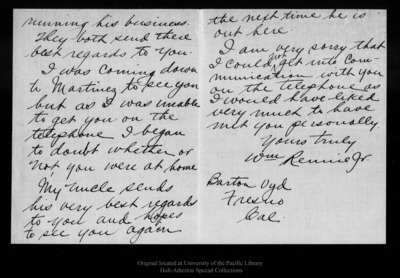 running his business.
They both send there
best regards to you.
I was coming down
to Martinez to see you
but as I was unable
to get you on the
telephone I began
to doubt whether or
not you were at home
My uncle sends
his very best regards
to you and hopes
to see you again
the next time he is
out here.
I am very sorry that
I could not get into com-
munication with you
on the telephone as
I would have liked
very much to have
met you personally.
Yours truly
Wm Rennie Jr.
Barton Vyd
Fresno
Cal.
Original located at University of the Pacific Library
Holt-Atherton Special Collections